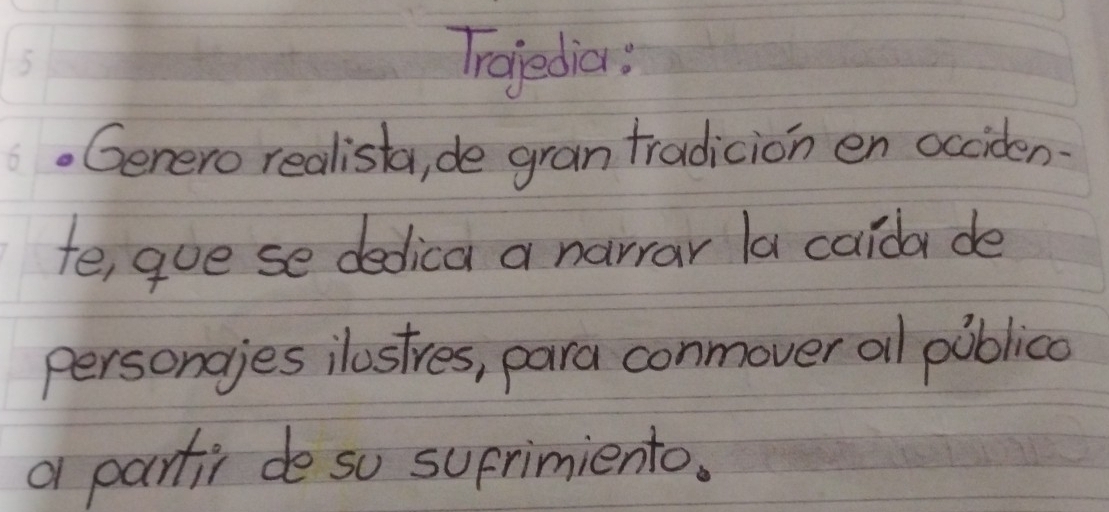 Trajedia:
• Genero realista, de gran tradición en occiden-
te, que se dedica a narrar la caída de
personajes ilustres, para conmover al público
a partir de su sufrimiento.